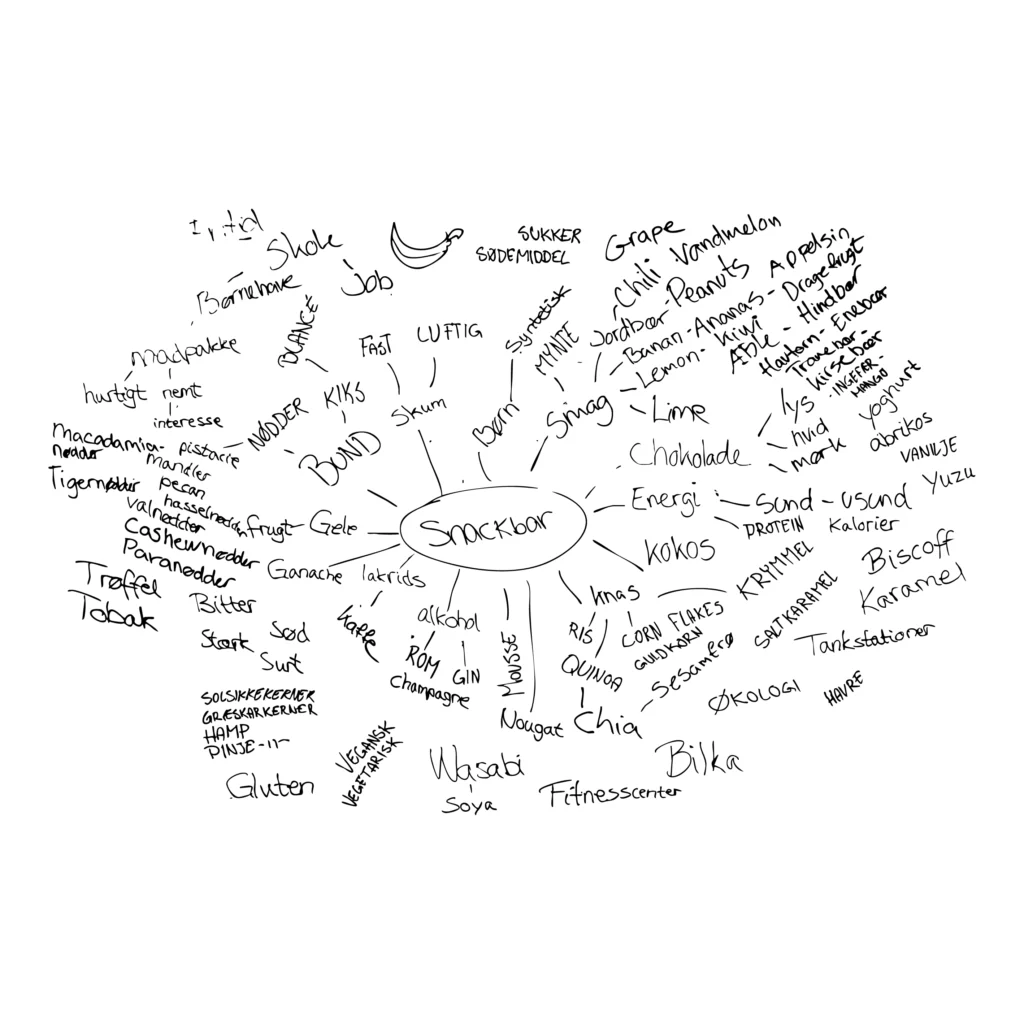 Skole
Job
Børnehave
madpakke
hurtigt nemt
interesse
BLANCE
KIKS
NØDDER
BUND
macadamia-
nødder
pistacie
mandler
pecan
hasselnødder
Tigernødder
valnødder
Cashewnødder
Paranødder
FAST
LUFTIG
Skum
SUKKER
SØDEMIDDEL
Syntetisk
MYNTE
Børn
Smag
Grape
Vandmelon
Chili
Peanuts
Jordbær
Banan - Ananas - Appelsin
Lemon - kiwi
Dragefrugt
Æble - Hindbær
Havtorn - Enebær
Tranebær -
kirsebær
INGEFÆR -
MANGO
Lime
Chokolade
lys
hvid
mørk
yoghurt
abrikos
VANILJE
Yuzu
Snackbar
Energi
Sund - usund
PROTEIN
Kalorier
kokos
frugt
Gele
Ganache
lakrids
kaffe
alkohol
ROM
GIN
champagne
MOUSSE
Nougat
knas
RIS
QUINOA
Chia
CORN FLAKES
GULDKORN
Sesamfrø
KRYMMEL
SALTKARAMEL
Biscoff
Karamel
Tankstationer
ØKOLOGI
HAVRE
Trøffel
Tobak
Bitter
Stærk
Sød
Surt
SOLSIKKEKERNER
GRÆSKARKERNER
HAMP
PINJE -11-
Gluten
VEGANSK
VEGETARISK
Wasabi
Soya
Fitnesscenter
Bilka